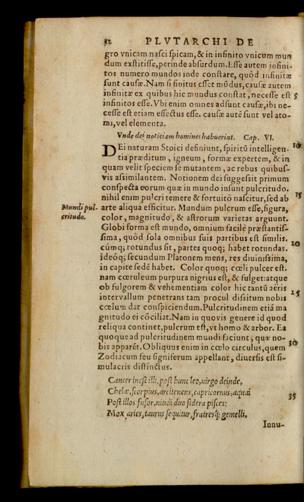 52 PLVTARCHI DE
gro vnicam nasci spicam, & in infinito vnicum mun
dum exstitisse, perinde absurdum. Esse autem infini-
tos numero mundos inde constare, quòd infinitæ
sunt causæ. Nam si finitus esset mũdus, causæ autem
infinitæ ex quibus hic mundus constat, necesse est
infinitos esse. Vbi enim omnes adsunt causæ, ibi ne-
cesse est etiam effectus esse. causæ autẽ sunt vel ato-
mi, vel elementa.
Vnde dei notitiam homines habuerint. Cap. VI.
DEi naturam Stoici definiunt, spiritũ intelligen-
tia præditum, igneum, formæ expertem, & in
quam velit speciem se mutantem, ac rebus quibus-
vis assimilantem. Notionem dei suggessit primum
conspecta eorum quæ in mundo insunt pulcritudo.
nihil enim pulcri temere & fortuitò nascitur, sed ab
arte aliqua efficitur. Mundum pulcrum esse, figura,
Mundi pul-
critudo.
color, magnitudo, & astrorum varietas arguunt.
Globi forma est mundo, omnium facilè præstantis-
sima, quòd sola omnibus suis partibus est similis.
cùmq; rotundus sit, partes quoq; habet rotundas.
Ideóq; secundum Platonem mens, res diuinissima,
in capite sedẽ habet. Color quoq; cœli pulcer est.
nam cœruleum purpura nigrius est, & fulget: atque
ob fulgorem & vehementiam color hic tantũ aëris
interuallum penetrans tam procul dissitum nobis
cœlum dat conspiciendum. Pulcritudinem etiã ma
gnitudo ei cõciliat. Nam in quouis genere id quod
reliqua continet, pulcrum est, vt homo & arbor. Ea
quoque ad pulcritudinem mundi faciunt, quæ no-
bis apparẽt. Obliquus enim in cœlo circulus, quem
Zodiacum seu signiferum appellant, diuersis est si-
mulacris distinctus.
Cancer inest illi, post hunc leo, virgo deinde,
Chelæ, scorpius, arcitenens, capricornus, aquai
Post illos fusor, nitidi duo sidera pisces:
Mox aries, taurus sequitur, fratresq; gemelli.
Innu-
5
10
15
20
25
30
35